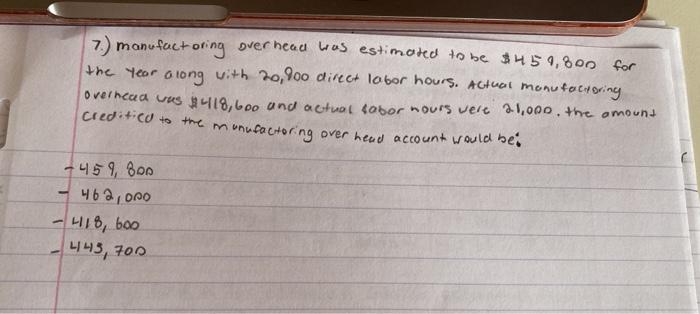 7.) manufactoring overhead was estimated to be $459,800 for
the year along with 20,900 direct labor hours. Actual manufactoring
overhead was $418,600 and actual labor hours were 21,000. the amount
creditied to the manufactoring over head account would be:
- 459,800
- 462,000
- 418,600
- 445,700